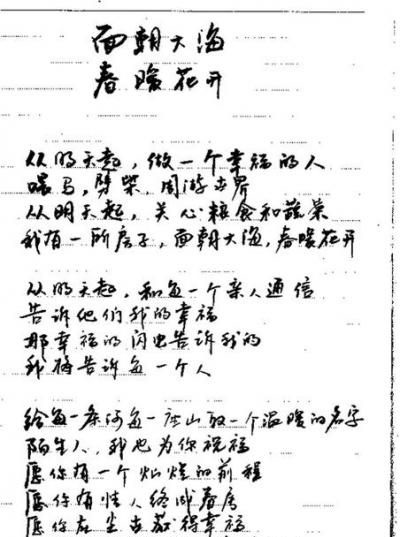 面朝大海
春暖花开
从明天起，做一个幸福的人
喂马，劈柴，周游世界
从明天起，关心粮食和蔬菜
我有一所房子，面朝大海，春暖花开
从明天起，和每一个亲人通信
告诉他们我的幸福
那幸福的闪电告诉我的
我将告诉每一个人
给每一条河每一座山取一个温暖的名字
陌生人，我也为你祝福
愿你有一个灿烂的前程
愿你有情人终成眷属
愿你在尘世获得幸福